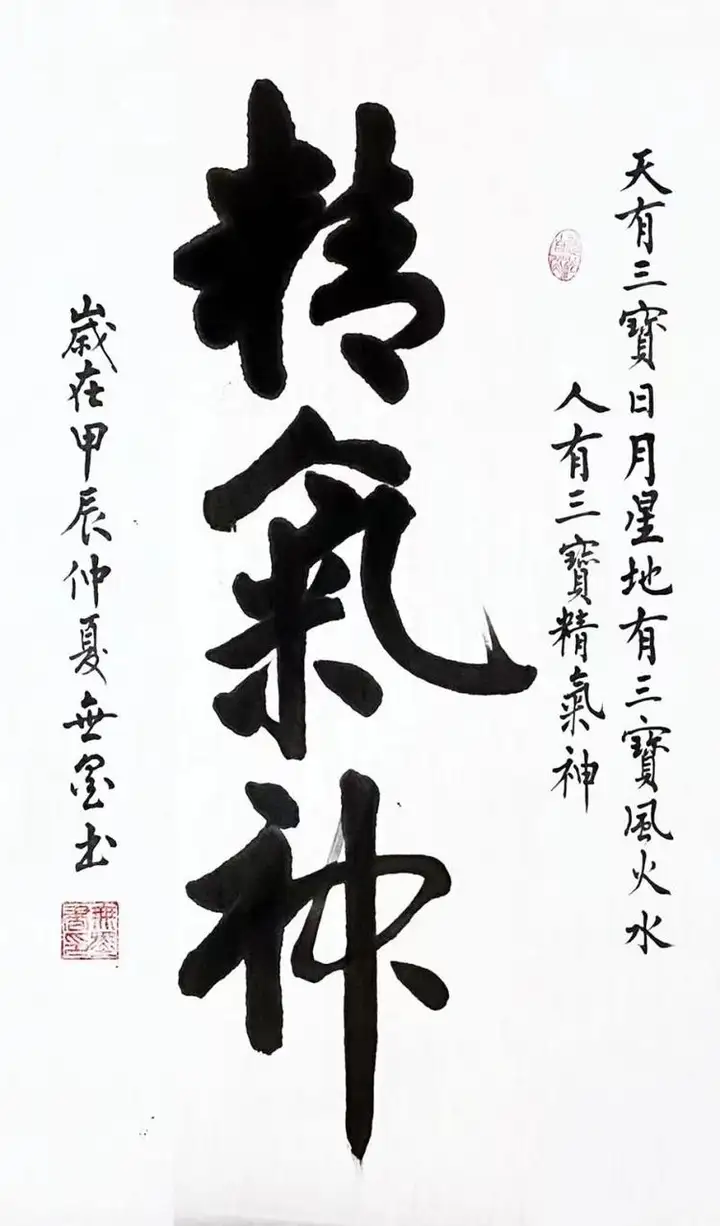 天有三寶日月星地有三寶風火水
人有三寶精氣神
精氣神
嵗在甲辰仲夏無书